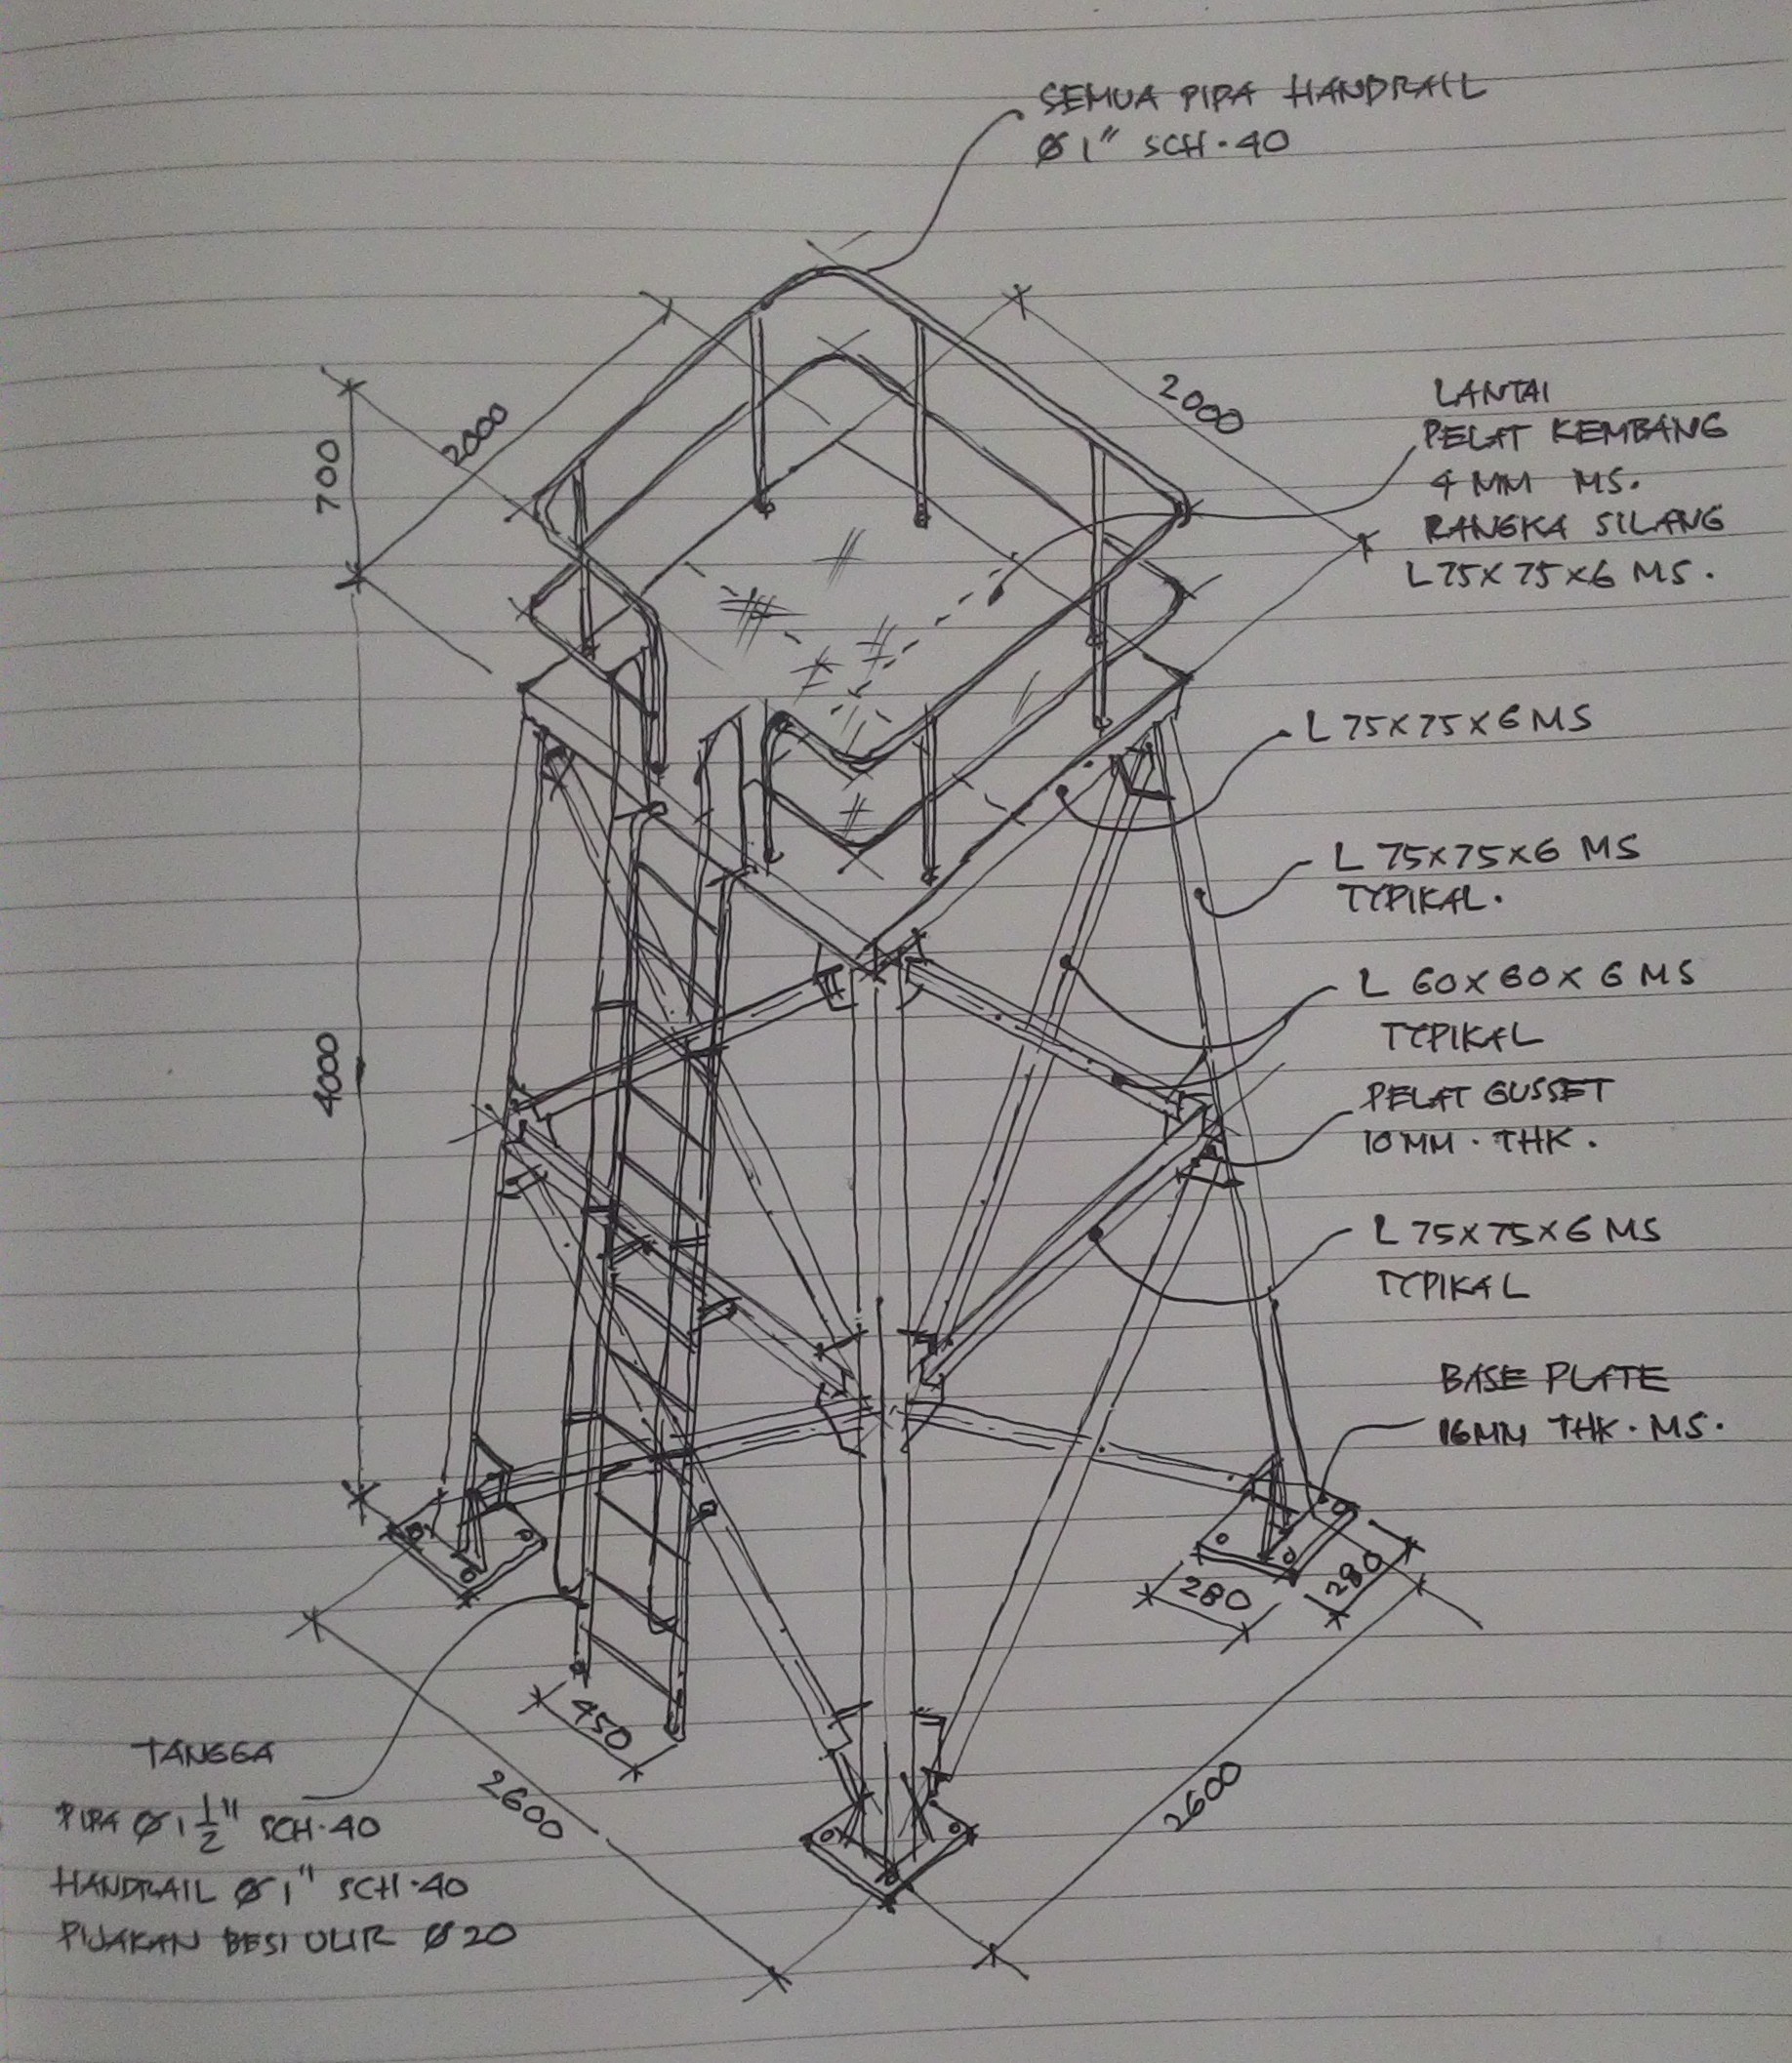 SEMUA PIPA HANDRAIL
Ø 1" SCH·40
2000
2000
700
LANTAI
PELAT KEMBANG
4 MM MS.
RANGKA SILANG
L 75X75X6 MS.
L 75X75X6 MS
L 75X75X6 MS
TYPIKAL.
L 60X60X6 MS
TYPIKAL
4000
PELAT GUSSET
10 MM. THK.
L 75X75X6 MS
TYPIKAL
BASE PLATE
16MM THK. MS.
280
280
450
TANGGA
PIPA Ø 1 1/2" SCH·40
HANDRAIL Ø 1" SCH·40
PIJAKAN BESI ULIR Ø 20
2600
2600